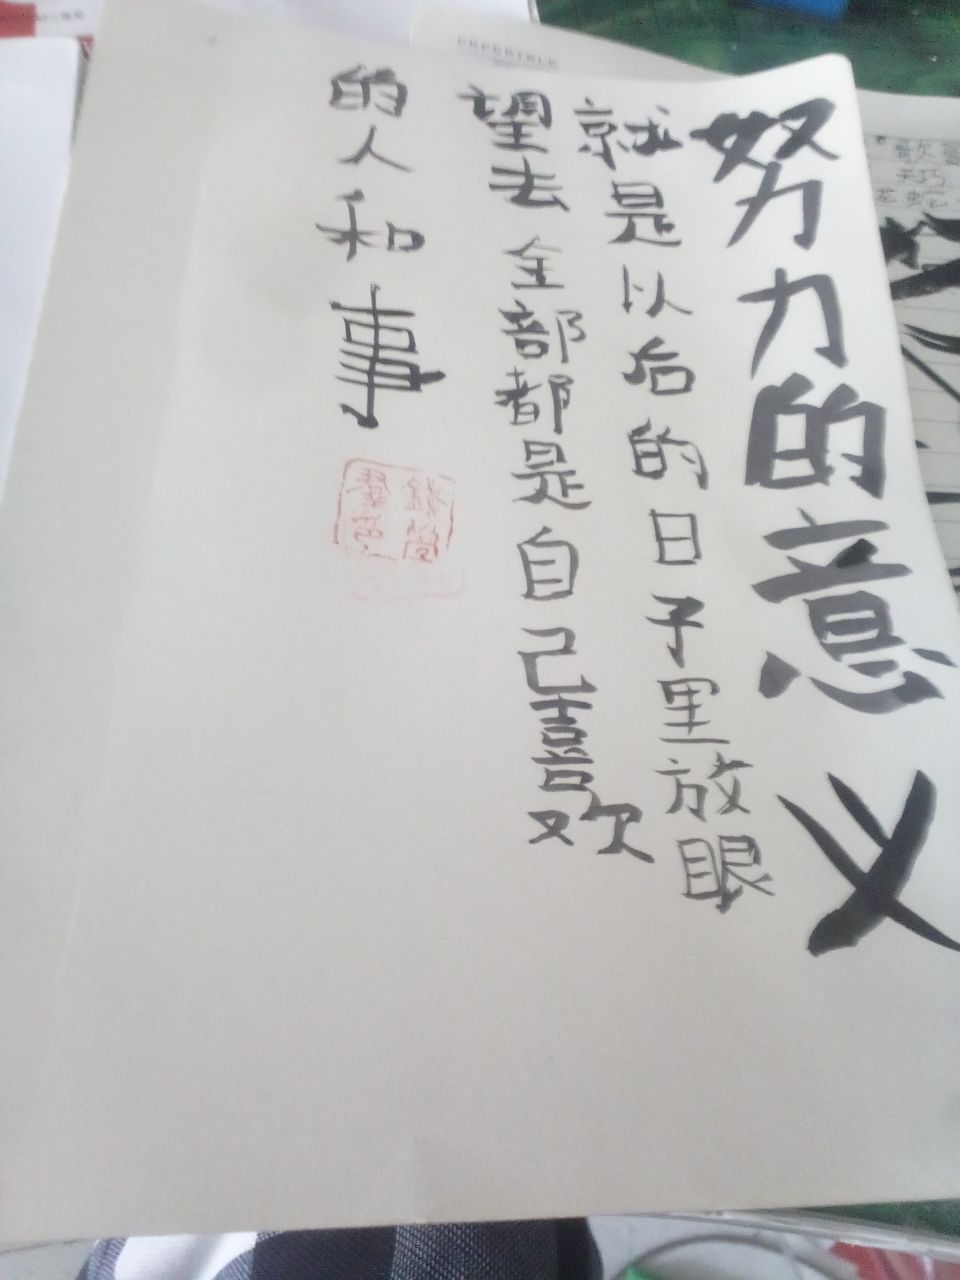 努力的意义
就是以后的日子里放眼
望去全部都是自己喜欢
的人和事
PAPERTALK